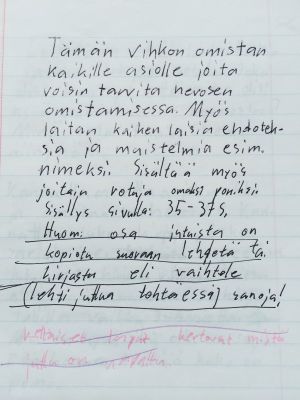 Tämän vihkon omistan
kaikille asioille joita
voisin tarvita hevosen
omistamisessa. Myös
laitan kaiken laisia ehdotek-
sia ja muistelmia esim.
nimeksi. Sisältää myös
joitain rotuja omaksi poniksi.
Sisällys sivulla: 35-375,
Huom: osa jutuista on
kopioitu suoraan lehdetä tai
kirjasta eli vaihtele
(lehti juttua tehtäessä) sanoja!
tarput kertovat mistä
juttu on